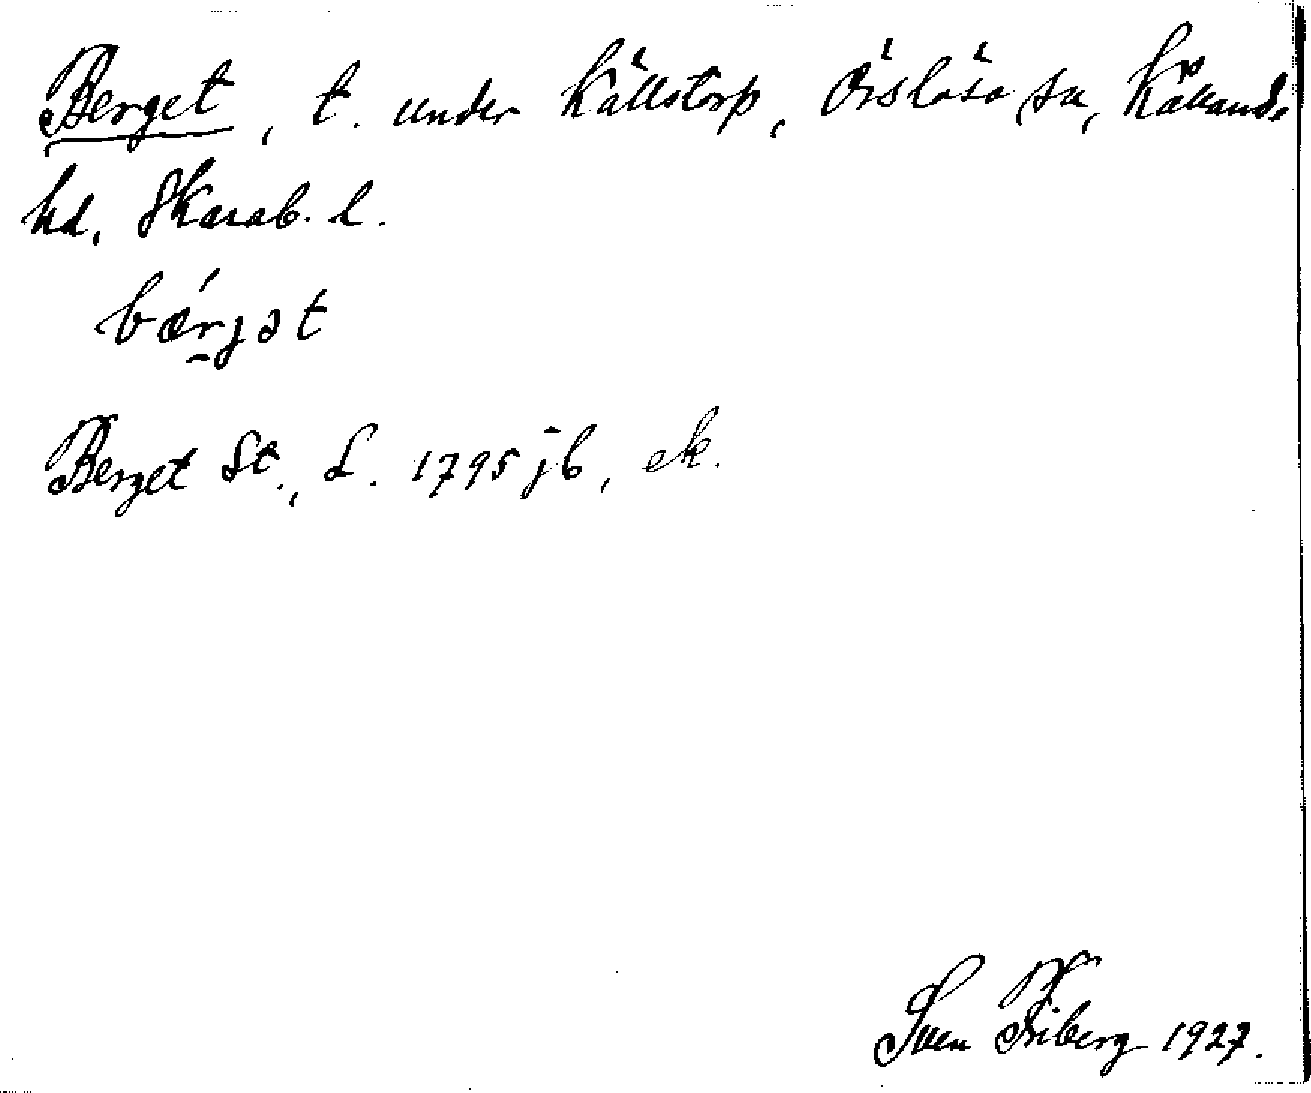 Berget, t. under Källstorp, Örslösa sn, Kållands
hd, Skarab. l.
bærjət
Berget St., L. 1795 jb, ek.
Sven Friberg 1927.